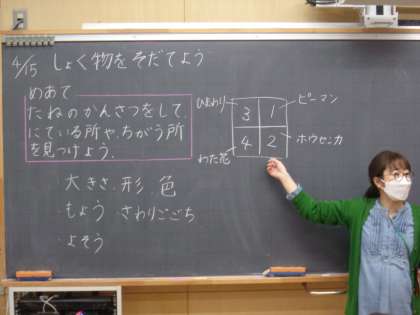 4/15 しょく物をそだてよう
めあて
たねのかんさつをして、
にている所や、ちがう所
を見つけよう。
・大きさ、形、色
・もよう ・さわりごこち
・よそう
ひまわり 3 1 ピーマン
わた花 4 2 ホウセンカ